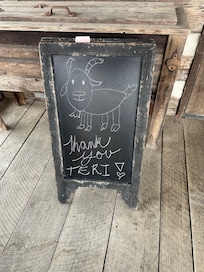 Thank
you
TERI